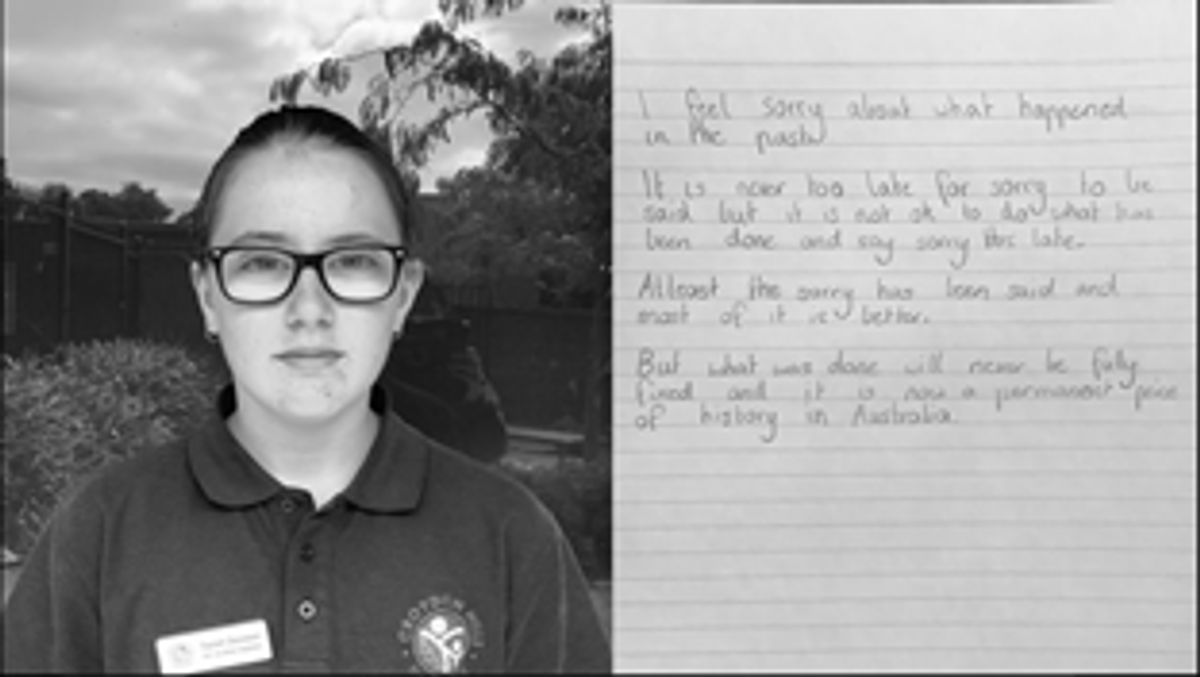 I feel sorry about what happened
in the past
It is never too late for sorry to be
said but it is not ok to do what has
been done and say sorry this late.
Atleast the sorry has been said and
most of it is better.
But what was done will never be fully
fixed and it is now a permanent peice
of history in Australia.
CROYDON HILLS